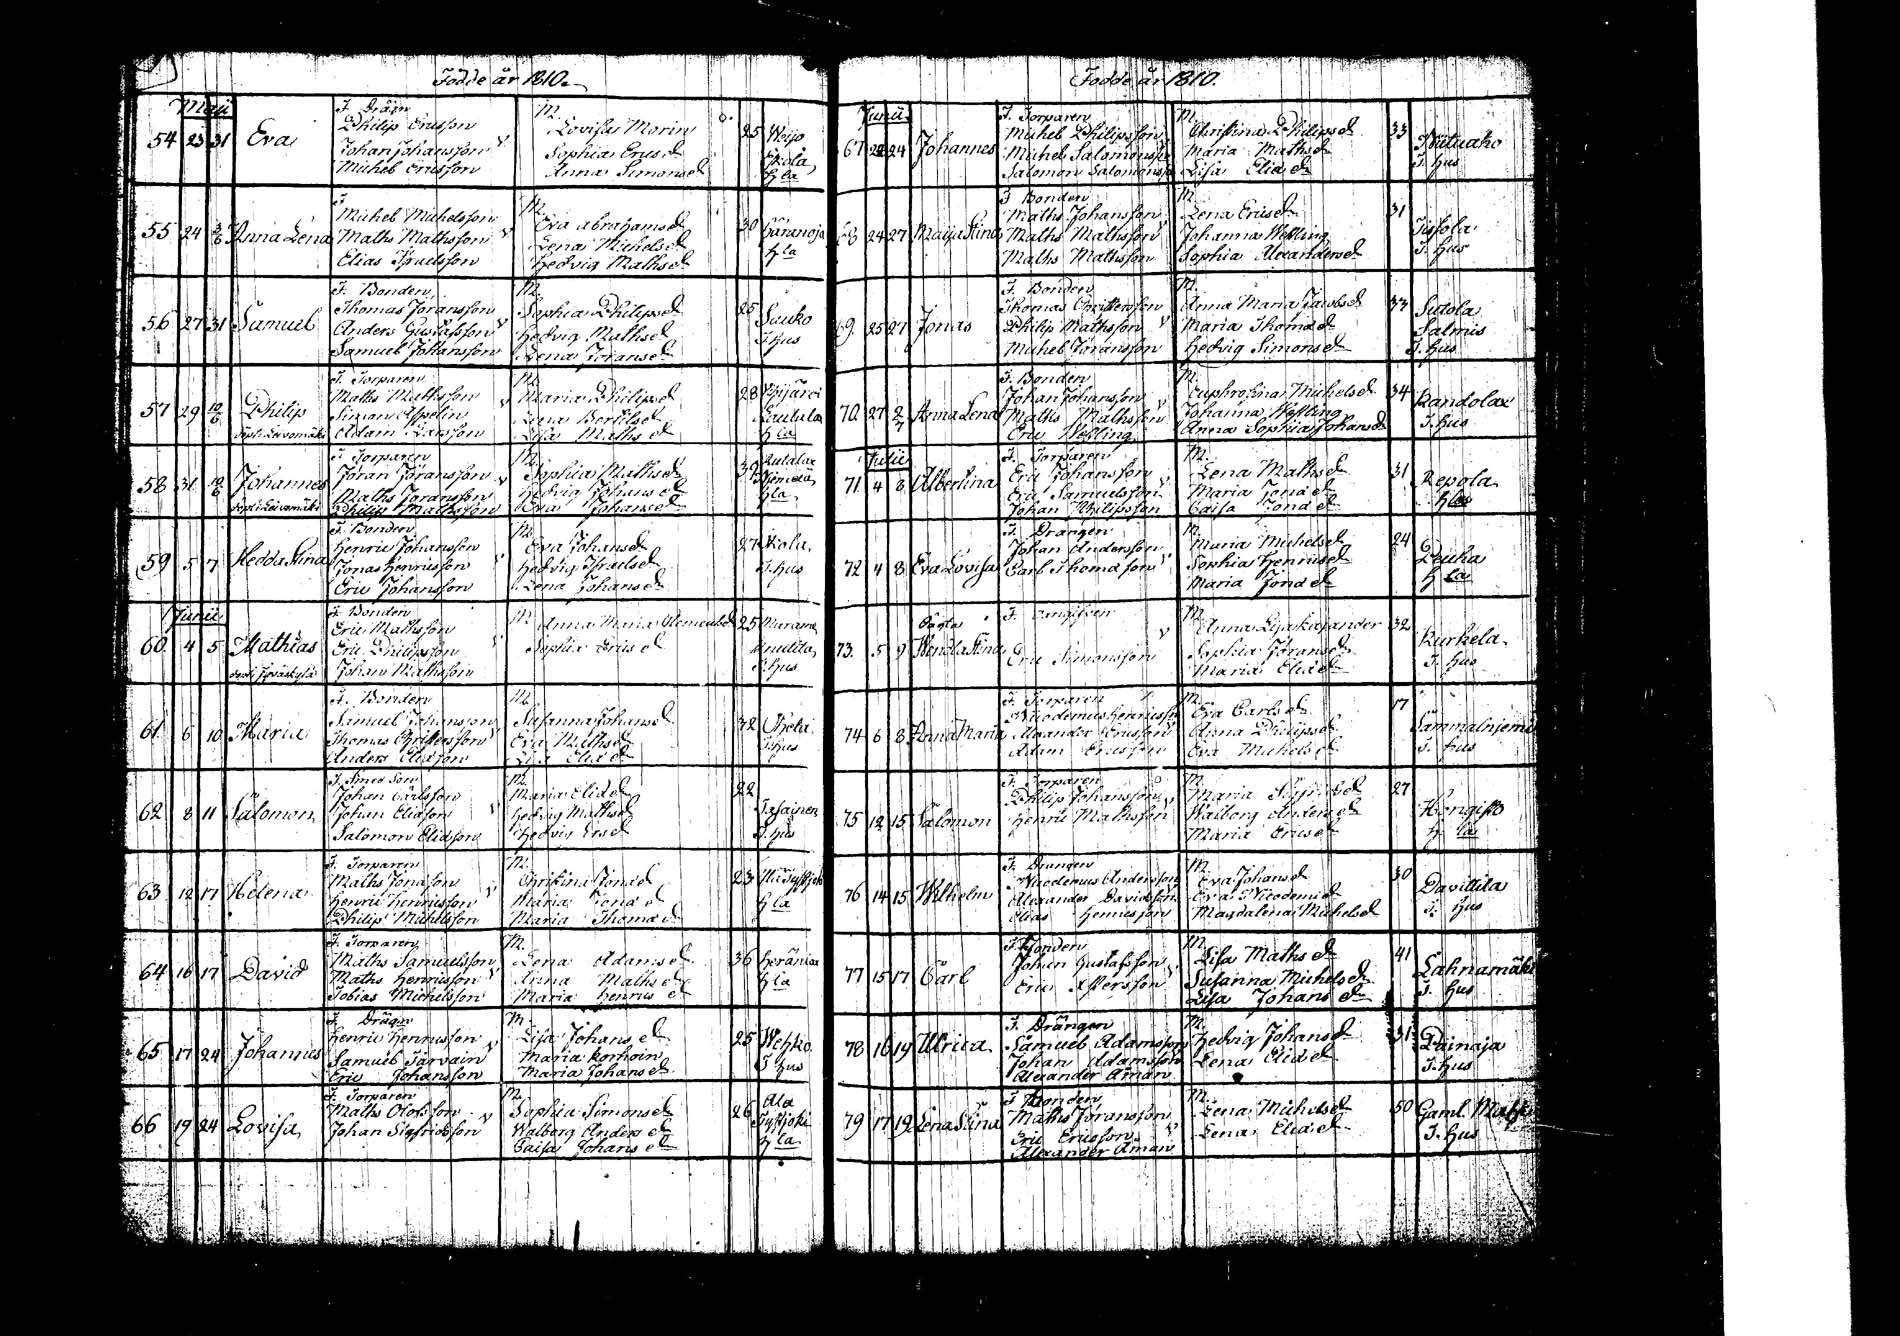 Födde år 1810.
Maji
54 23 31 Eva
F. Drän
Philip Ericsson
Johan Johansson
Michel Ericsson
M.
Lovisa Morin
Sophia Ericsd.
Anna Simonsd.
25
Skola
H la
55 24 3/6 Anna Lena
F
Michel Michelsson
Maths Mathsson
Elias Israelsson
M.
Eva Abrahamsd.
Lena Michelsd.
Hedvig Mathsd.
30
Häranoja
H la
56 27 31 Samuel
F. Bonden
Thomas Jöransson
Anders Gustafsson
Samuel Johansson
M.
Sophia Philipsd.
Hedvig Mathsd.
Lena Joransd.
25
Suuko
T. hus
57 29 10/6 Philip
F. Torparen
Maths Mathsson
Simon Aspelin
Adam Larsson
M.
Maria Philipsd.
Lena Bertilsd.
Lisa Mathsd.
28
Lautala
H la
58 31 10/6 Johannes
F. Torparen
Jöran Jöransson
Maths Joransson
Philip Mathsson
M.
Sophia Mathsd.
Hedvig Johansd.
Eva Johansd.
39
H la
59 5 7 Hedda Stina
F. Bonden
Henric Johansson
Jonas Henricsson
Eric Johansson
M.
Eva Johansd.
Hedvig Israelsd.
Lena Johansd.
27
Skola
T. hus
Junii
60 4 5 Mathias
F. Bonden
Eric Mathsson
Eric Philipsson
Johan Mathsson
M. Anna Maria Clementsd.
Sophia Ericsd.
25
T. hus
61 6 10 Maria
F. Bonden
Samuel Johansson
Thomas Christersson
Anders Eliasson
M.
Susanna Johansd.
Eva Mathsd.
Lisa Eliaed.
32
T. hus
62 8 11 Salomon
F. Smed Son
Johan Carlsson
Johan Eliasson
Salomon Eliasson
M.
Maria Eliaed.
Hedvig Mathsd.
Hedvig Ersd.
22
T. hus
63 12 17 Helena
F. Torparen
Maths Jonasson
Henric Henricsson
Philip Michelsson
M.
Christina Jonaed.
Maria Jonaed.
Maria Thomaed.
23
H la
64 16 17 David
F. Torparen
Maths Samuelsson
Maths Henricsson
Tobias Michelsson
M.
Lena Adamsd.
Anna Mathsd.
Maria Henricsd.
36
H la
65 17 24 Johannes
F. Drägn
Henric Henricsson
Samuel Tarvain
Eric Johansson
M.
Lisa Johansd.
Maria Korhoin
Maria Johansd.
25
Wehko
T. hus
66 19 24 Lovisa
F. Torparen
Maths Olofsson
Johan Sigfridsson
M.
Sophia Simonsd.
Walborg Andersd.
Caisa Johansd.
26
Ala
H la
Födde år 1810.
Junii
67 22 24 Johannes
F. Torparen
Michel Philipsson
Michel Salomonsson
Salomon Salomonsson
M.
Christina Philipsd.
Maria Mathsd.
Lisa Eliaed.
33
T. hus
68 24 27 Maija Stina
F. Bonden
Maths Johansson
Maths Mathsson
Maths Mathsson
M.
Lena Ericsd.
Johanna Welling
Sophia Alexandersd.
31
T. hus
69 25 27 Jonas
F. Bonden
Thomas Christersson
Philip Mathsson
Michel Joransson
M.
Anna Maria Jacobsd.
Maria Thomaed.
Hedvig Simonsd.
33
Sutola
Salmis
T. hus
70 27 2/7 Anna Lena
F. Bonden
Johan Johansson
Maths Mathsson
Eric Welling
M.
Euphrosina Michelsd.
Johanna Welling
Anna Sophia Johansd.
34
Kandolax
T. hus
Julii
71 4 8 Albertina
F. Torparen
Eric Johansson
Eric Samuelsson
Johan Philipsson
M.
Lena Mathsd.
Maria Jonaed.
Caisa Jonaed.
31
Repola
72 4 8 Eva Lovisa
F. Drängen
Johan Andersson
Carl Thomasson
M.
Maria Michelsd.
Sophia Henricsd.
Maria Jonaed.
24
Peuha
H la
73. 5 9 Wendla Stina
F.
Eric Simonsson
M.
Anna Lisa Kajander
Sophia Jöransd.
Maria Eliaed.
32
Kurkela
T. hus
74 6 8 Anna Maria
F. Torparen
Nicodemus Henricsson
Alexander Ericsson
Adam Ericsson
M.
Eva Carlsd.
Anna Philipsd.
Eva Michelsd.
17
Sammalniemi
T. hus
75 12 15 Salomon
F. Torparen
Philip Johansson
Henric Mathsson
M.
Maria Sigfridsd.
Walborg Andersd.
Maria Ericsd.
27
Hongisto
H la
76 14 15 Wilhelm
F. Drängen
Nicodemus Andersson
Alexander Davidsson
Elias Henricsson
M.
Eva Johansd.
Eva Nicodemid.
Magdalena Michelsd.
30
Davittila
T. hus
77 15 17 Carl
F. Bonden
Johan Gustafsson
M.
Lisa Mathsd.
Susanna Michelsd.
Lisa Johansd.
41
Lahnamäki
T. hus
78 16 19 Ulrica
F. Drängen
Samuel Adamsson
Johan Adamsson
Alexander Åman
M.
Hedvig Johansd.
Lena Eliaed.
31
Painaja
T. hus
79 17 19 Lena Stina
F. Bonden
Maths Joransson
Eric Ericsson
Alexander Åman
M.
Lena Michelsd.
Lena Eliaed.
50
Gaml.
T. hus